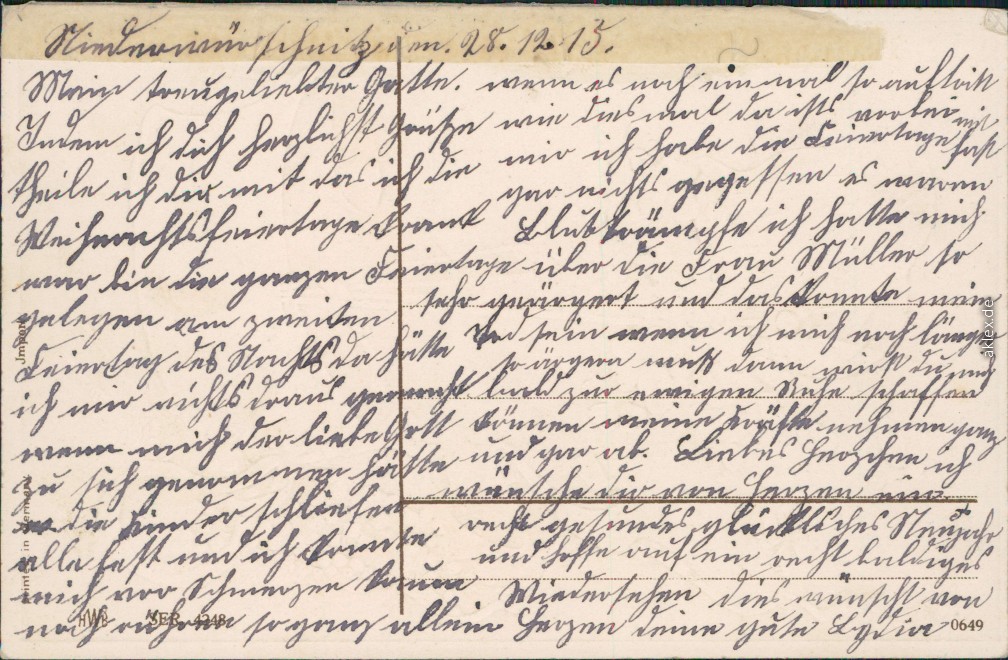 Niederwürschnitz, den. 28. 12. 15.
Mein treugeliebter Gatte.
Indem ich dich herzlichst Grüße
theile ich dir mit das ich die
Weihnachtsfeiertage krank
war bin die ganzen Feiertage
gelegen am zweiten
Feiertag des Nachts da hätte
ich mir nichts draus gemacht
wenn mich der liebe Gott
zu sich genommen hätte
die Kinder schliefen
alle fest und ich konnte
mich vor Schmerzen kaum
noch rühren so ganz allein
wenn es noch einmal so auftritt
wie diesmal da ists vorbei mit
mir ich habe die Feiertage fast
gar nichts gegessen es waren
Blutkrämpfe ich hatte mich
über die Frau Müller so
sehr geärgert und das konnte mein
Tod sein wenn ich mich noch länger
so ärgern muß dann wirst du mich
bald zur ewigen Ruhe schaffen
können meine Kräfte nehmen ganz
und gar ab. Liebes Herzchen ich
wünsche dir von Herzen ein
recht gesundes glückliches Neujahr
und hoffe auf ein recht baldiges
Wiedersehen dies wünscht von
Herzen deine gute Lydia
Import
Printed in Germany
HWB SER. 4248
0649
aklex.de